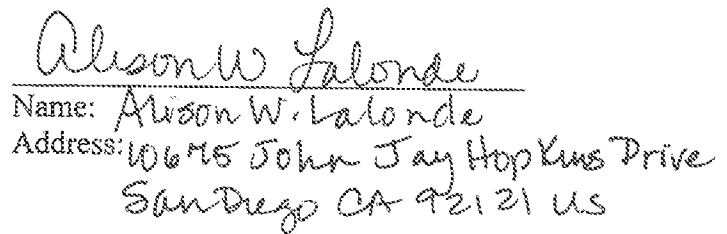 Alison W Lalonde
Name: Alison W. Lalonde
Address: 10675 John Jay Hopkins Drive
San Diego CA 92121 US